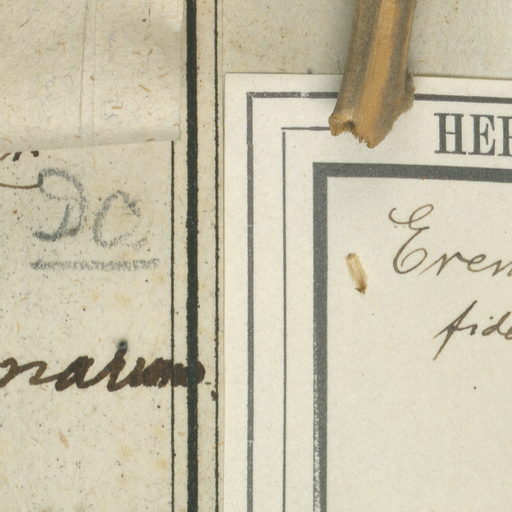 DC
narum.
HER
Erem
fide